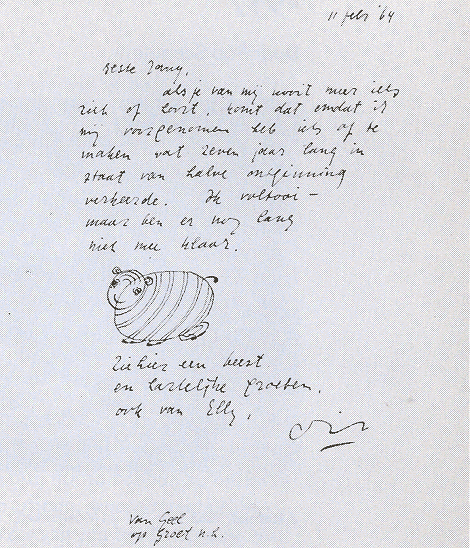 11 febr '64
Beste Jany,
als je van mij nooit meer iets
ziet of hoort, komt dat omdat ik
mij voorgenomen heb iets af te
maken wat zeven jaar lang in
staat van halve ontginning
verkeerde. Ik voltooi –
maar ben er nog lang
niet mee klaar.
Ziehier een beest
en hartelijke groeten,
ook van Elly,
van Geel
op Groet n.h.